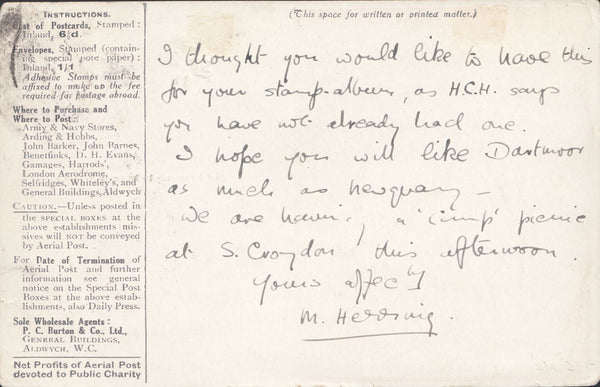 INSTRUCTIONS.
Cost of Postcards, Stamped :
Inland, 6½d.
Envelopes, Stamped (contain-
ing special note paper) :
Inland, 1/1
Adhesive Stamps must be
affixed to make up the fee
required for postage abroad.
Where to Purchase and
Where to Post :—
Army & Navy Stores,
Arding & Hobbs,
John Barker, John Barnes,
Benetfinks, D. H. Evans,
Gamages, Harrods',
London Aerodrome,
Selfridges, Whiteley's, and
General Buildings, Aldwych
CAUTION.—Unless posted in
the SPECIAL BOXES at the
above establishments mis-
sives will NOT be conveyed
by Aerial Post.
For Date of Termination of
Aerial Post and further
information see general
notice on the Special Post
Boxes at the above estab-
lishments, also Daily Press.
Sole Wholesale Agents :
P. C. Burton & Co., Ltd.,
GENERAL BUILDINGS,
ALDWYCH, W.C.
Net Profits of Aerial Post
devoted to Public Charity
(This space for written or printed matter.)
I thought you would like to have this
for your stamp-album, as H.C.H. says
you have not already had one.
I hope you will like Dartmoor
as much as Newquay —
We are having a picnic
at S. Croydon this afternoon.
Yours affectly
M. Herring.